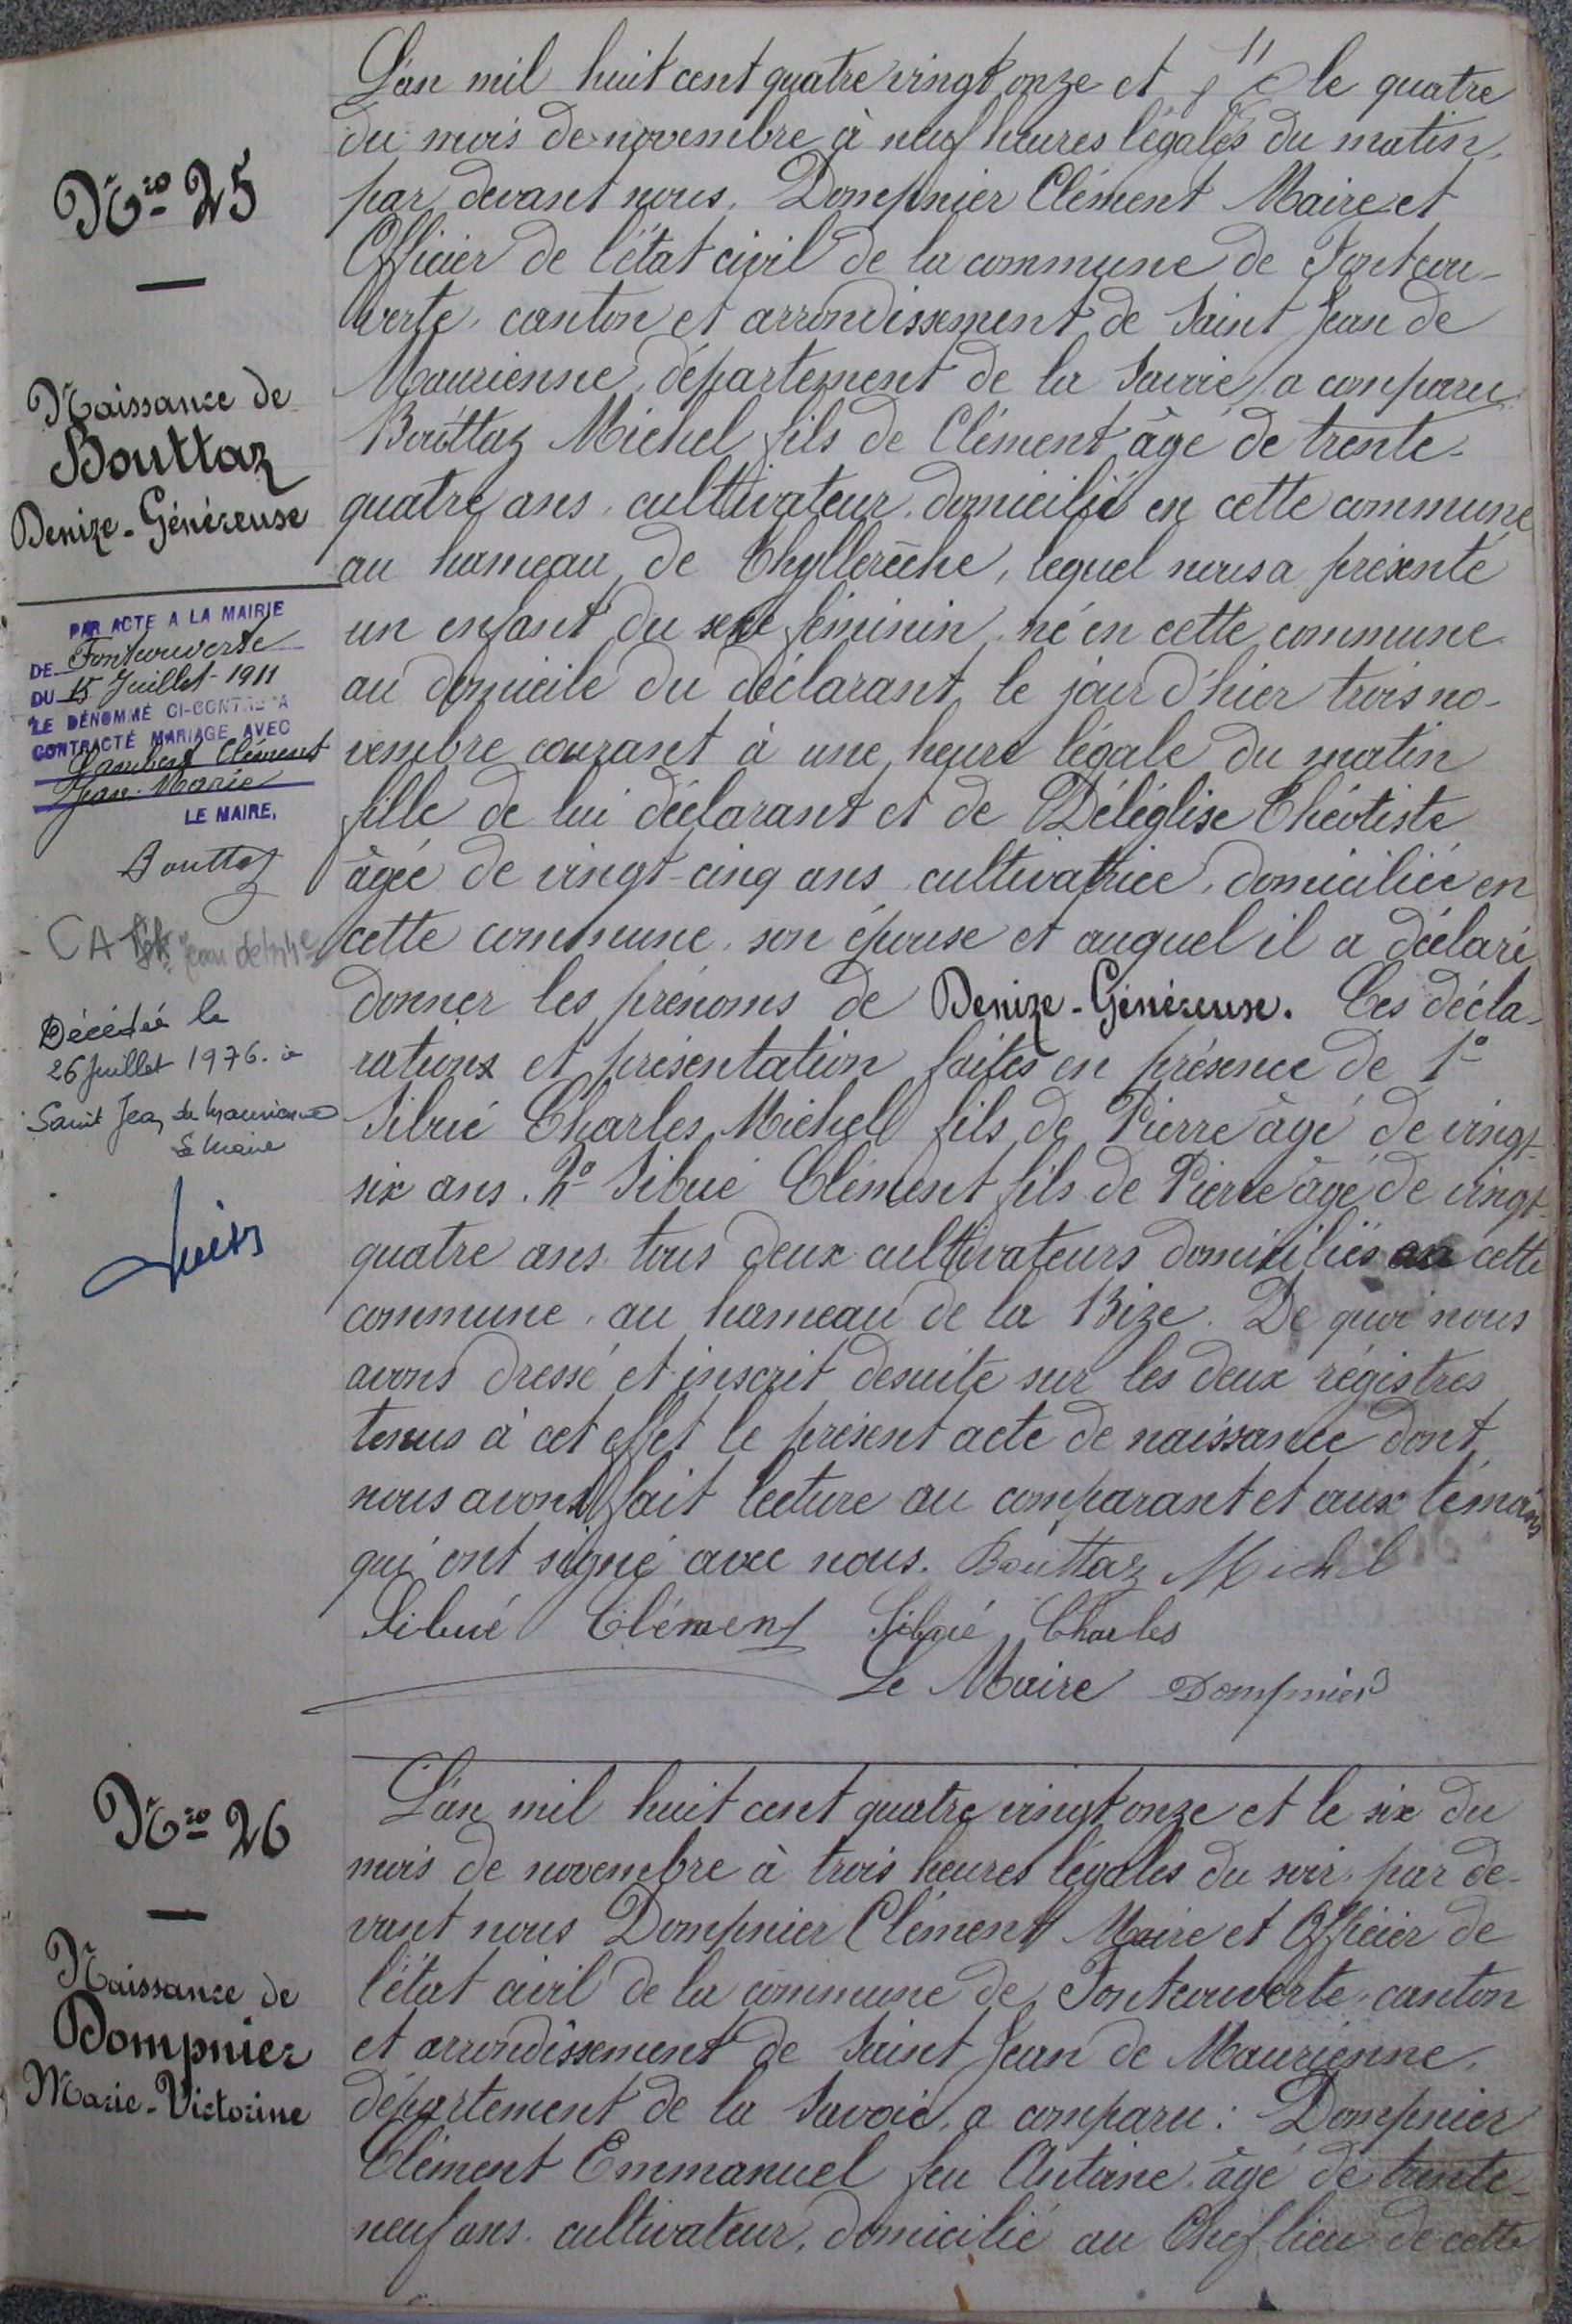 Nro 25
Naissance de
Bouttaz
Denize-Généreuse
PAR ACTE A LA MAIRIE
DE Fontcouverte
DU 15 Juillet 1911
LE DÉNOMMÉ CI-CONTRE A
CONTRACTÉ MARIAGE AVEC
Lambert Clément
Jean-Marie
LE MAIRE,
Bouttaz
CA
Décédée le
26 Juillet 1976 à
Saint Jean de Maurienne
Le Maire
L'an mil huit cent quatre vingt onze et le quatre
du mois de novembre à neuf heures légales du matin,
par devant nous, Dompnier Clément Maire et
Officier de l'état civil de la commune de Fontcou-
verte, canton et arrondissement de Saint Jean de
Maurienne, département de la Savoie, a comparu
Bouttaz Michel fils de Clément âgé de trente-
quatre ans, cultivateur, domicilié en cette commune
au hameau de Chyllerèche, lequel nous a présenté
un enfant du sexe féminin, né en cette commune
au domicile du déclarant, le jour d'hier trois no-
vembre courant à une heure légale du matin
fille de lui déclarant et de Déléglise Théotiste
âgée de vingt-cinq ans, cultivatrice, domiciliée en
cette commune, son épouse et auquel il a déclaré
donner les prénoms de Denize-Généreuse. Ces décla-
rations et présentation faites en présence de 1°
Sibué Charles Michel fils de Pierre âgé de vingt-
six ans. 2° Sibué Clément fils de Pierre âgé de vingt-
quatre ans, tous deux cultivateurs domiciliés en cette
commune, au hameau de la Bize. De quoi nous
avons dressé et inscrit desuite sur les deux régistres
tenus à cet effet le présent acte de naissance dont
nous avons fait lecture au comparant et aux témoins
qui ont signé avec nous. Bouttaz Michel
Sibué Clément Sibué Charles
Le Maire Dompnier
Nro 26
Naissance de
Dompnier
Marie-Victorine
L'an mil huit cent quatre vingt onze et le six du
mois de novembre à trois heures légales du soir, par de-
vant nous Dompnier Clément Maire et Officier de
l'état civil de la commune de Fontcouverte, canton
et arrondissement de Saint Jean de Maurienne,
département de la Savoie, a comparu : Dompnier
Clément Emmanuel feu Antoine, âgé de trente-
neuf ans, cultivateur, domicilié au Chef lieu de cette